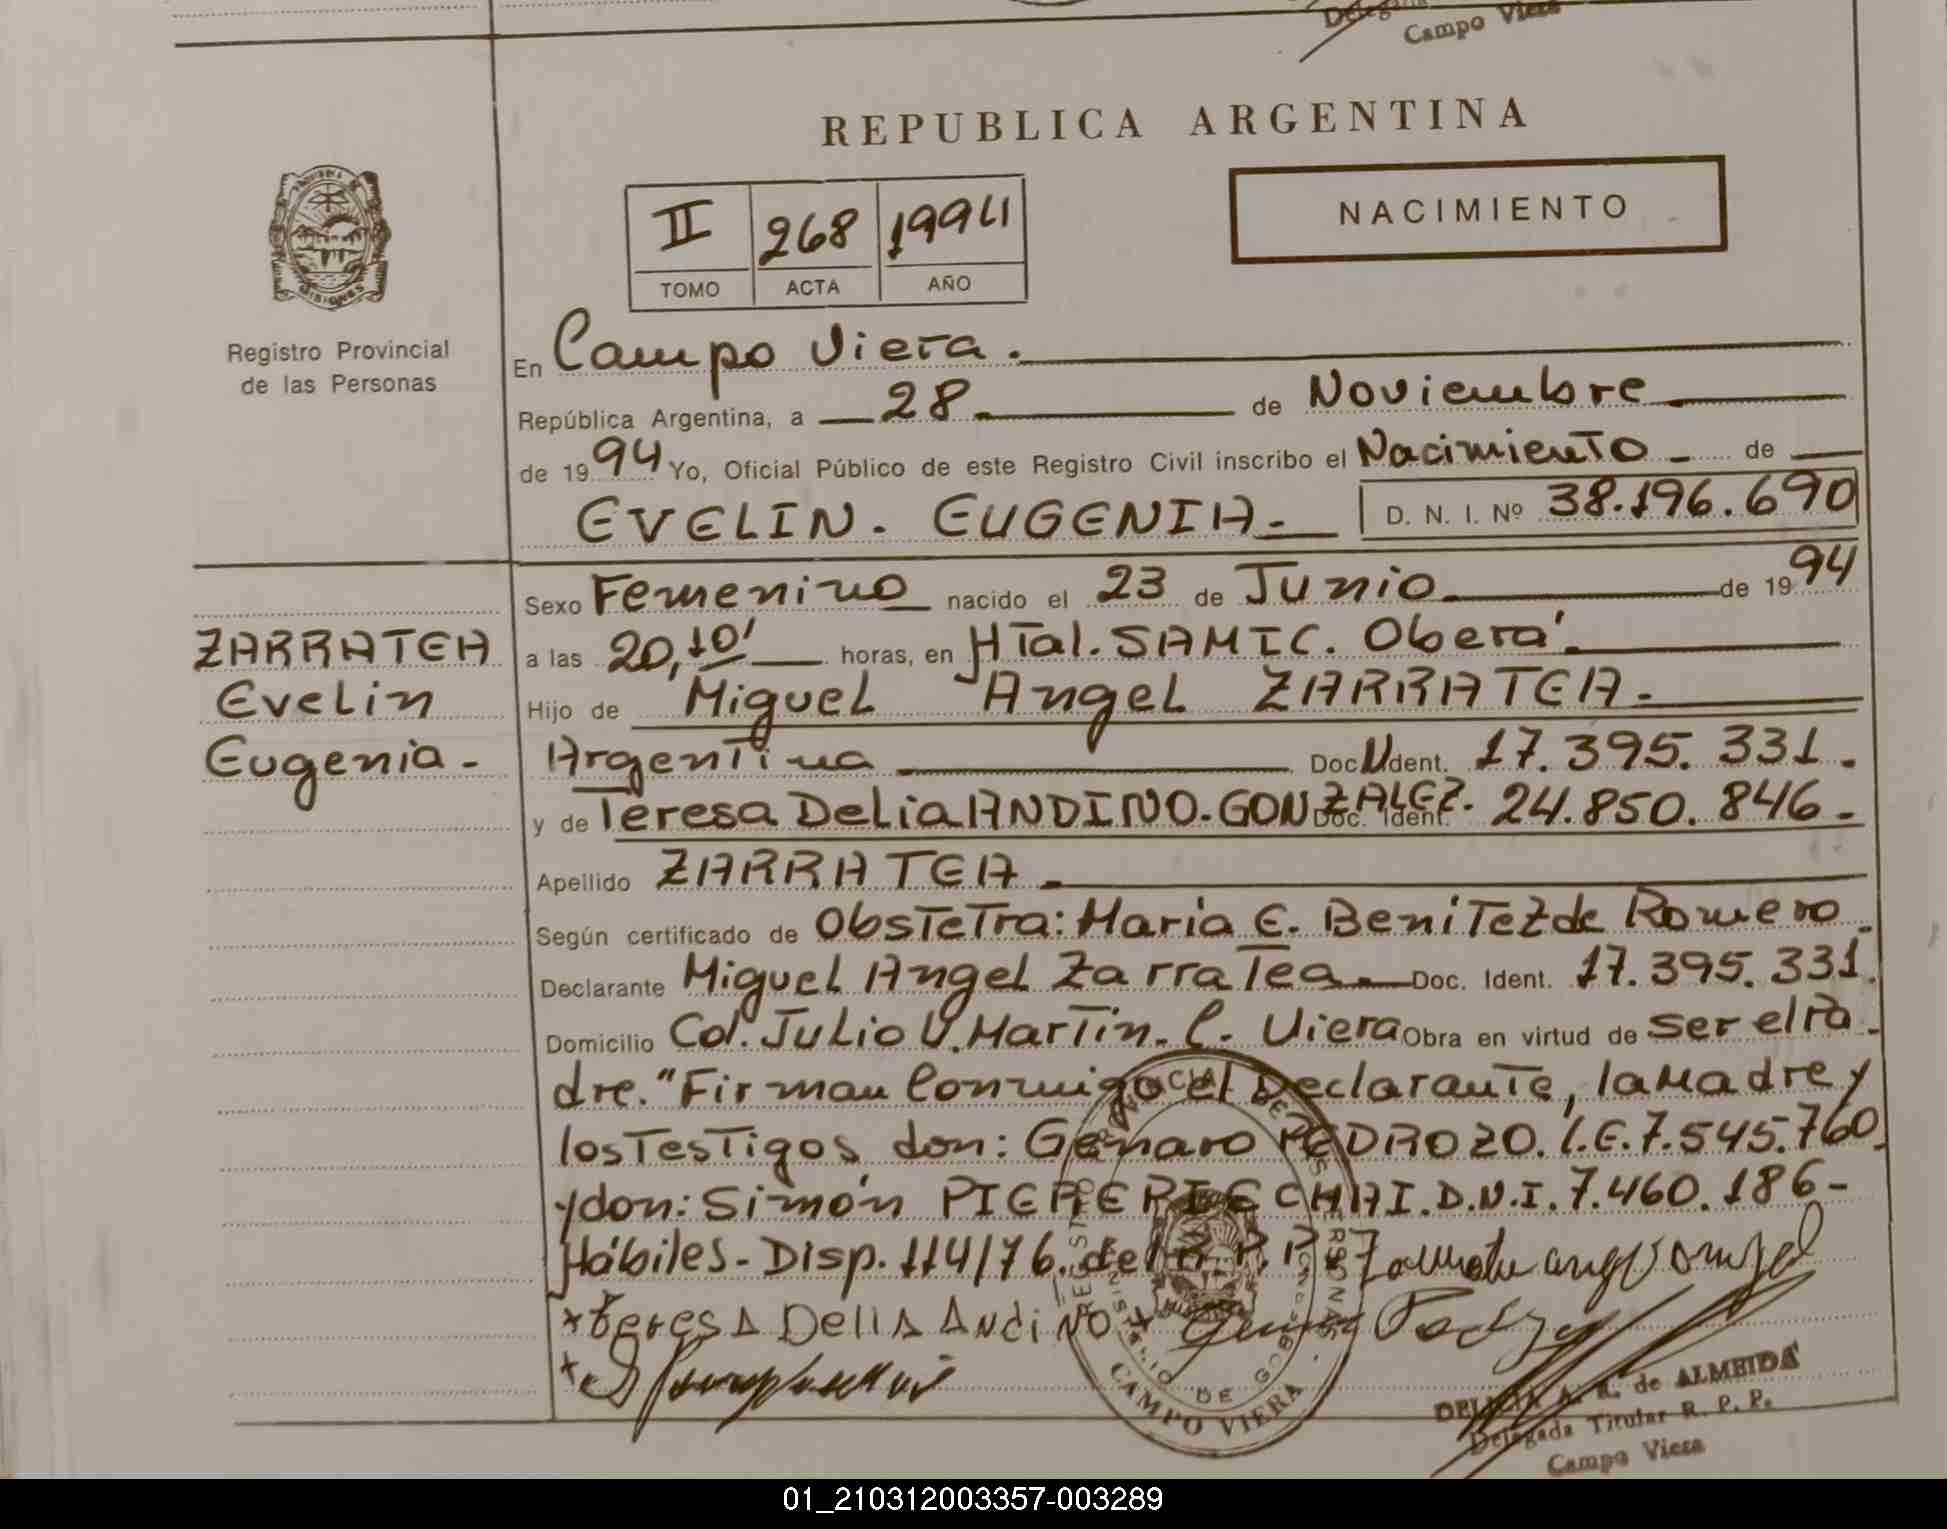 Delega
Campo Viera
REPUBLICA ARGENTINA
NACIMIENTO
II 268 1994
TOMO ACTA AÑO
MISIONES
Registro Provincial
de las Personas
En Campo Viera.
República Argentina, a 28 de Noviembre
de 1994 Yo, Oficial Público de este Registro Civil inscribo el Nacimiento de
EVELIN. EUGENIA. D. N. I. Nº 38.196.690
Sexo Femenino nacido el 23 de Junio de 1994
ZARRATEA
Evelin
Eugenia.
a las 20,10' horas, en HTal. SAMIC. Oberá.
Hijo de Miguel Angel ZARRATEA.
Argentina Doc. Ident. 17.395.331.
y de Teresa Delia ANDINO. GONZALEZ. Doc. Ident. 24.850.846.
Apellido ZARRATEA.
Según certificado de Obstetra: Maria E. Benitez de Romero.
Declarante Miguel Angel Zarratea. Doc. Ident. 17.395.331.
Domicilio Col. Julio U. Martin. C. Viera Obra en virtud de ser el Pa-
dre. "Firman Conmigo el Declarante, la Madre y
los Testigos don: Genaro PEDROZO. L.E. 7.545.760.
y don: Simón D.N.I. 7.460.186-
Hábiles- Disp. 114/76. del R.P.P.
+ teresA DeliA Andino +
+
REGISTRO PROVINCIAL DE LAS PERSONAS
MINISTERIO DE GOBIERNO
CAMPO VIERA
DELICIA A. R. de ALMEIDA
Delegada Titular R. P. P.
Campo Viera
01_210312003357-003289